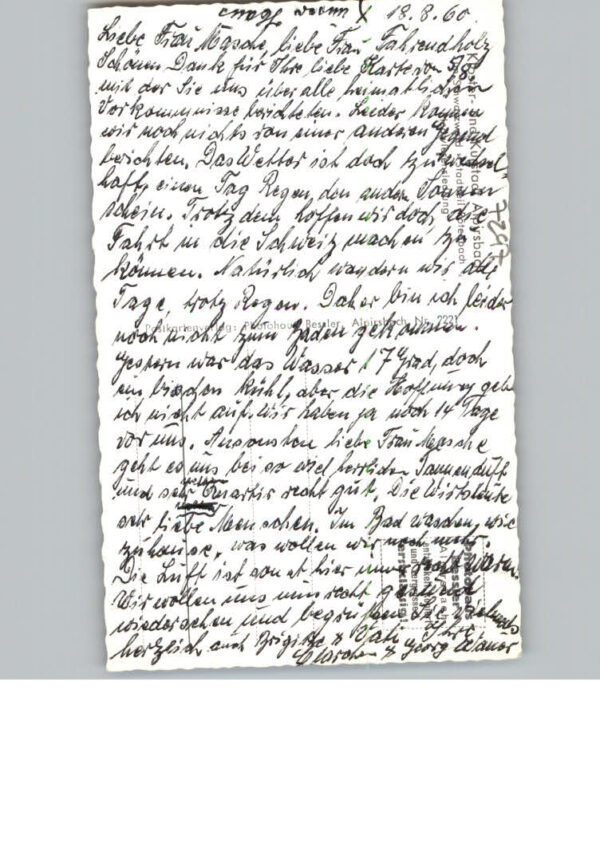 18.8.60.
Liebe Frau Masche, liebe Frau Fahrendholz
Schönen Dank für Ihre liebe Karte von 5/8
mit der Sie uns über alle heimatlichen
Vorkommnisse berichteten. Leider können
wir noch nichts von einer anderen Gegend
berichten. Das Wetter ist doch zu wechsel-
haft, einen Tag Regen, den andern Sonnen
schein. Trotzdem hoffen wir doch, die
Fahrt in die Schweiz machen zu
können. Natürlich wandern wir alle
Tage, trotz Regen. Daher bin ich leider
noch nicht zum Baden gekommen.
Gestern war das Wasser 17 Grad, doch
ein bisschen kühl, aber die Hoffnung gebe
ich nicht auf. Wir haben ja noch 14 Tage
vor uns. Ansonsten liebe Frau Masche
geht es uns bei so viel herrlichen Tannenduft
und sehr recht gut. Die Wirtsleute
sehr liebe Menschen. Im Bad werden, wie
zuhause, was wollen wir noch mehr.
Die Luft ist sonst hier
Wir wollen uns nun recht gesund
wiedersehen und begrüßen Sie
herzlich auch Brigitte & Ihre
& Georg
Postkartenverlag: Photohaus Bessler, Alpirsbach, Nr. 2221
Kloster- und Kurstadt Alpirsbach
7247
Photohaus
Bessler
Alpirsbach